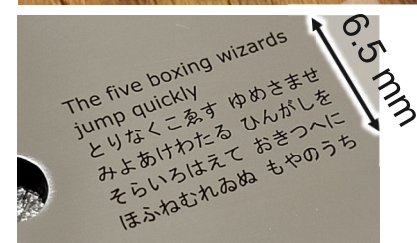 The five boxing wizards
jump quickly
とりなくこゑす ゆめさませ
みよあけわたる ひんがしを
そらいろはえて おきつへに
ほふねむれゐぬ もやのうち
6.5 mm